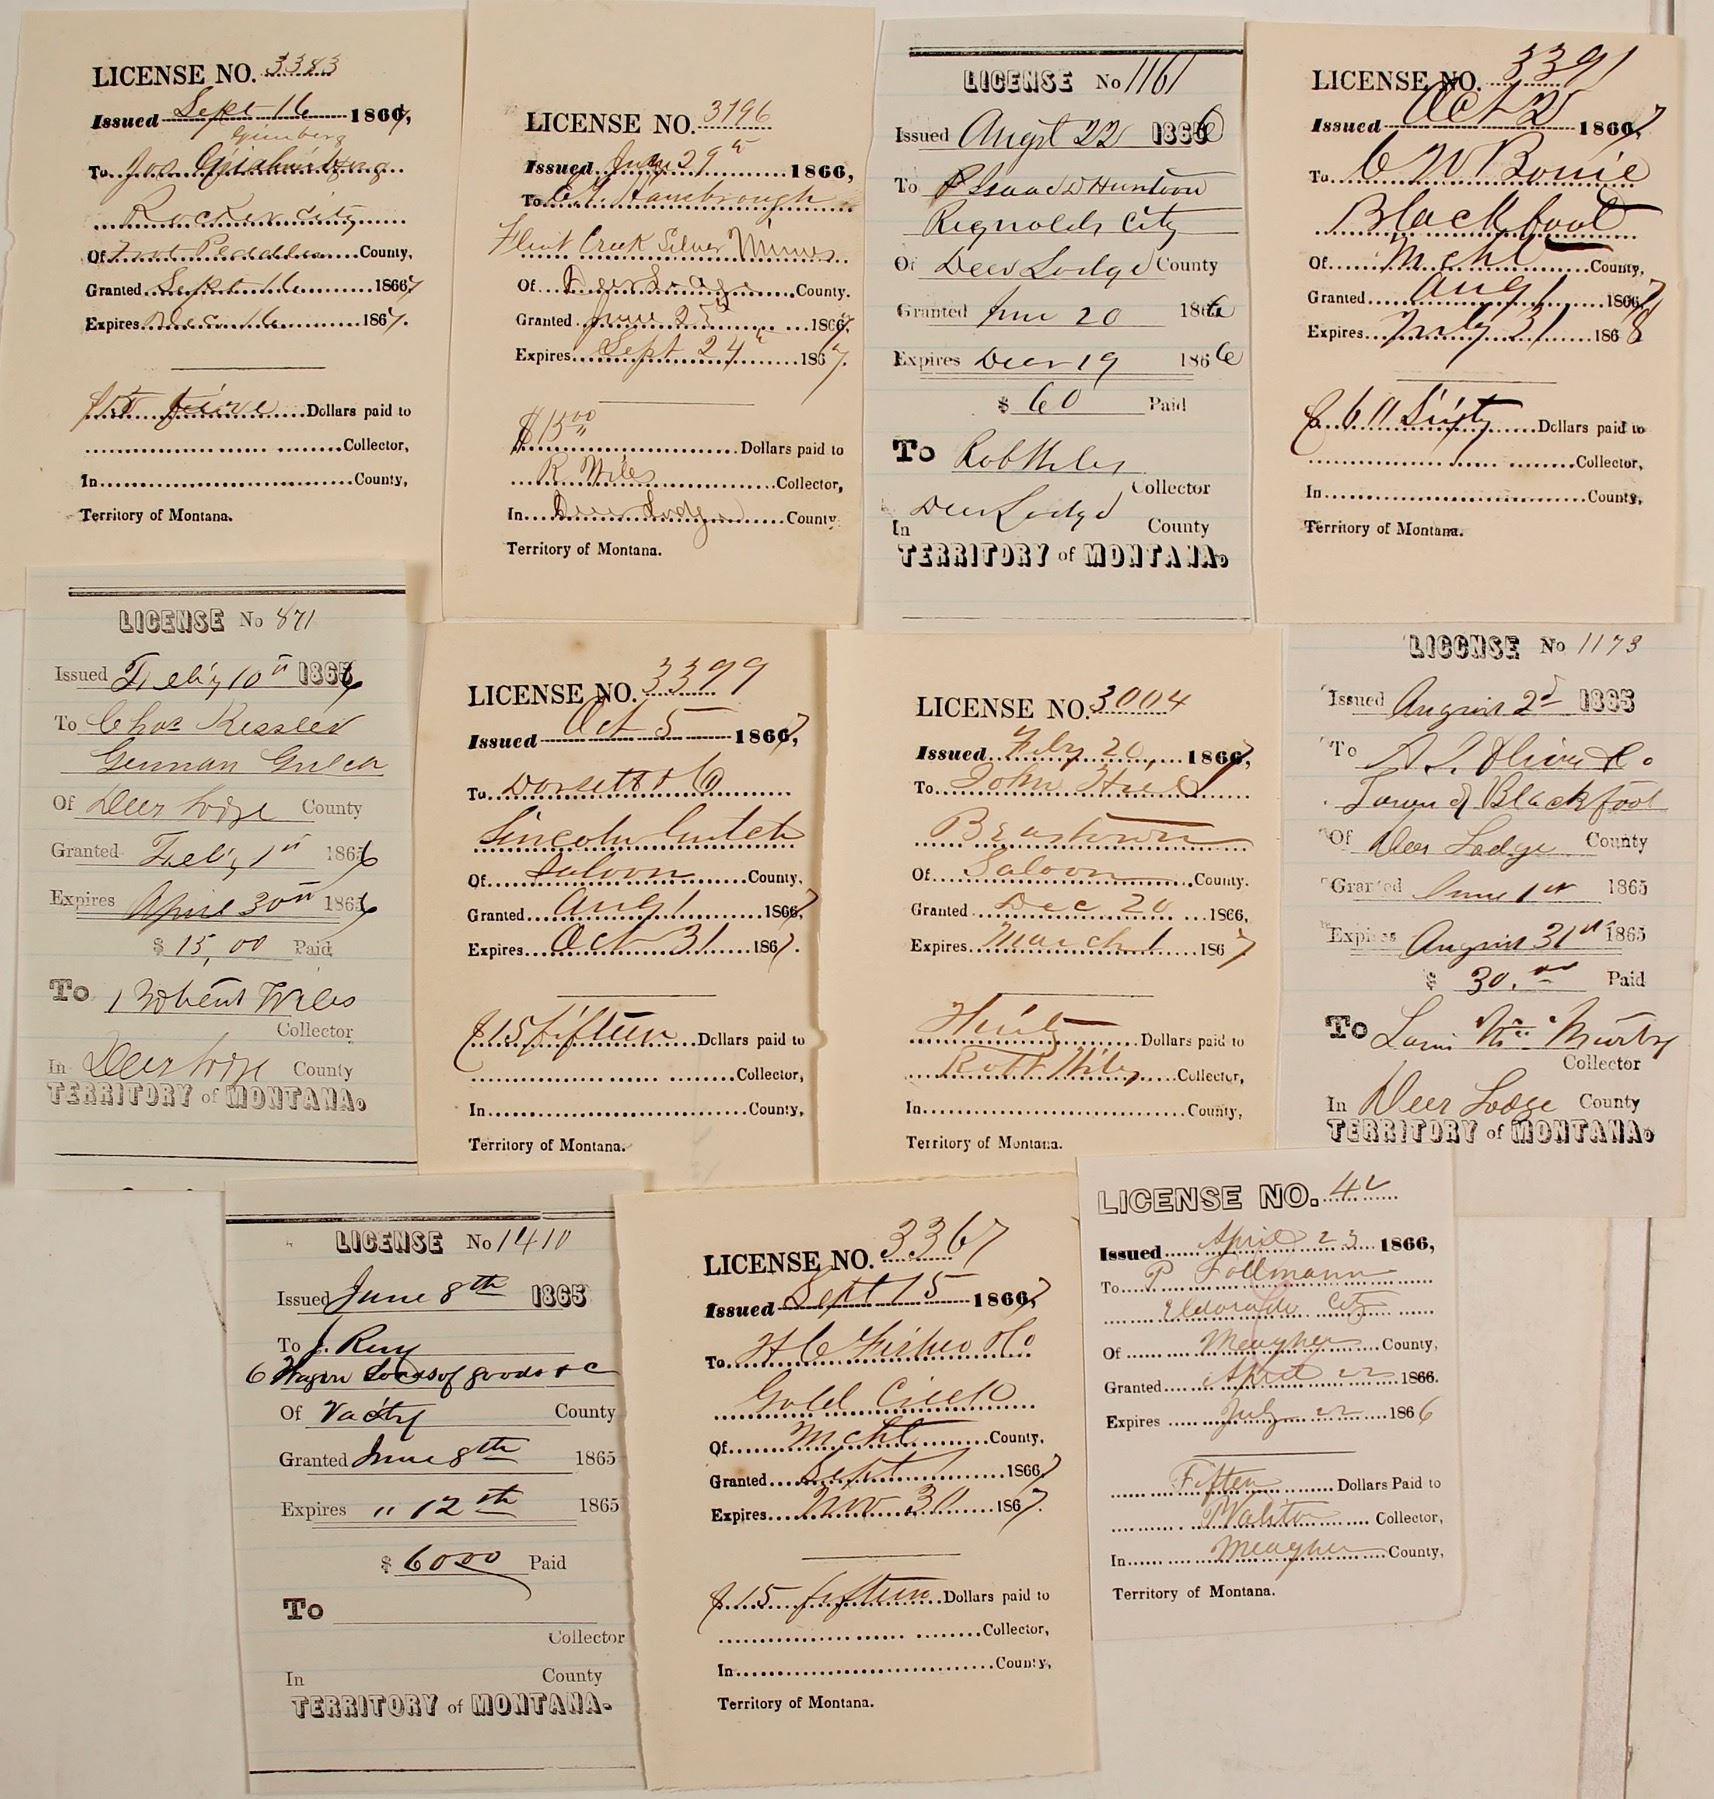 LICENSE NO. 3383
Issued Sept 16 1867,
Grinberg
To Jos
Rocker City
Of Foot Peddler County,
Granted Sept 16 1867
Expires Dec 16 1867.
$15 Dollars paid to
Collector,
In County,
Territory of Montana.
LICENSE NO. 3196
Issued June 29th 1866,
To Hambrough
Flint Creek Silver Mines
Of Deer Lodge County.
Granted June 25th 1867,
Expires Sept 24th 1867.
$15 00
Dollars paid to
R Wiles Collector,
In Deer Lodge County
Territory of Montana.
LICENSE No 1161
Issued Augst 22 1866
To Isaac D Huntoon
Reynolds City
Of Deer Lodge County
Granted June 20 1866
Expires Decr 19 1866
$ 60 Paid
To Rob Wiles
Collector
In Deer Lodge County
TERRITORY of MONTANA.
LICENSE NO. 3391
Issued Oct 2 1867,
To C W Bouie
Blackfoot
Of Mcht County,
Granted Aug 1 1867,
Expires July 31 1868
$60 Sixty Dollars paid to
Collector,
In County,
Territory of Montana.
LICENSE No 871
Issued Feb'y 10th 1866
To Chas Kessler
German Gulch
Of Deer Lodge County
Granted Feb'y 1st 1866
Expires April 30th 1866
$ 15,00 Paid
To Robert Wiles
Collector
In Deer Lodge County
TERRITORY of MONTANA.
LICENSE NO. 3399
Issued Oct 5 1867,
To Dorsett & Co
Lincoln Gulch
Of Saloon County,
Granted Aug 1 1867,
Expires Oct 31 1867.
$15 fifteen Dollars paid to
Collector,
In County,
Territory of Montana.
LICENSE NO. 3004
Issued Feby 20, 1867,
To John
Beartown
Of Saloon County.
Granted Dec 20 1866,
Expires March 1 1867
Dollars paid to
Robt Wiles Collector,
In County,
Territory of Montana.
LICENSE No 1173
Issued August 2d 1865
To Oliver & Co
Town of Blackfoot
Of Deer Lodge County
Granted June 1st 1865
Expires August 31st 1865
$ 30.00 Paid
To Murtry
Collector
In Deer Lodge County
TERRITORY of MONTANA.
LICENSE No 1410
Issued June 8th 1865
To J. Rey
6 Wagon Loads of goods & C
Of County
Granted June 8th 1865
Expires " 12th 1865
$ 6000 Paid
To
Collector
In County
TERRITORY of MONTANA.
LICENSE NO. 3367
Issued Sept 15 1867,
To H C Fisher & Co
Gold Creek
Of Mcht County,
Granted Sept 1 1867
Expires Nov 30 1867.
$15 fifteen Dollars paid to
Collector,
In County,
Territory of Montana.
LICENSE NO. 42
Issued April 23 1866,
To P Follmann
Eldorado City
Of Meagher County,
Granted April 22 1866.
Expires July 22 1866
Fiften Dollars Paid to
Collector,
In Meagher County,
Territory of Montana.